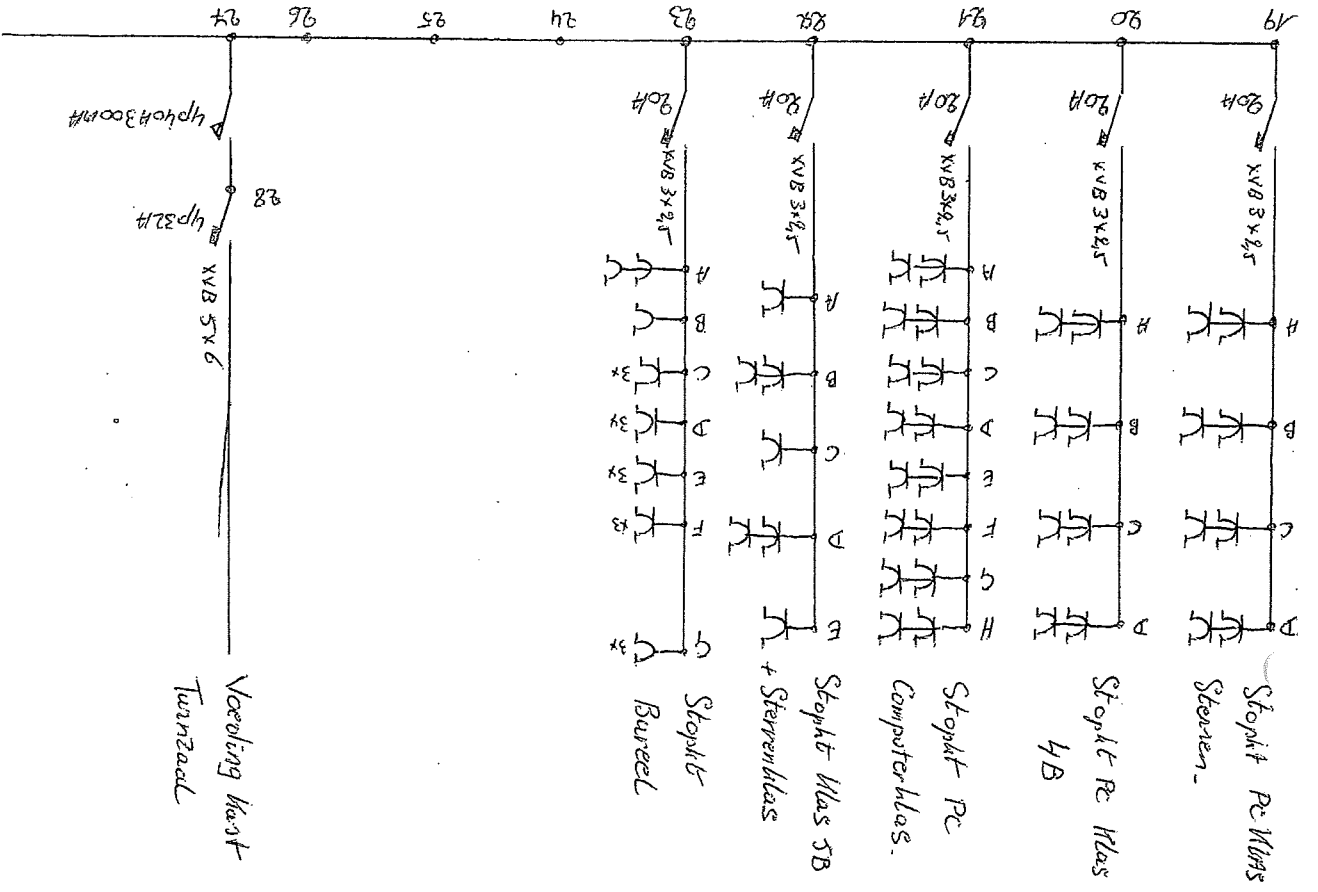 19
20A
XVB 3x2,5
A
B
C
D
Stopkt PC Klas
Sterren
20
20A
XVB 3x2,5
A
B
C
D
Stopkt PC Klas
4B
21
20A
XVB 3x2,5
A
B
C
D
E
F
G
H
Stopkt PC
Computerklas.
22
20A
XVB 3x2,5
A
B
C
D
E
Stopkt Klas 5B
+ Sterrenklas
23
20A
XVB 3x2,5
A
B
C 3x
D 3x
E 3x
F x3
G 3x
Stopkt
Bureel
24
25
26
27
4p40A300mA
28
4p32A
XVB 5x6
Voeding Kast
Turnzaal